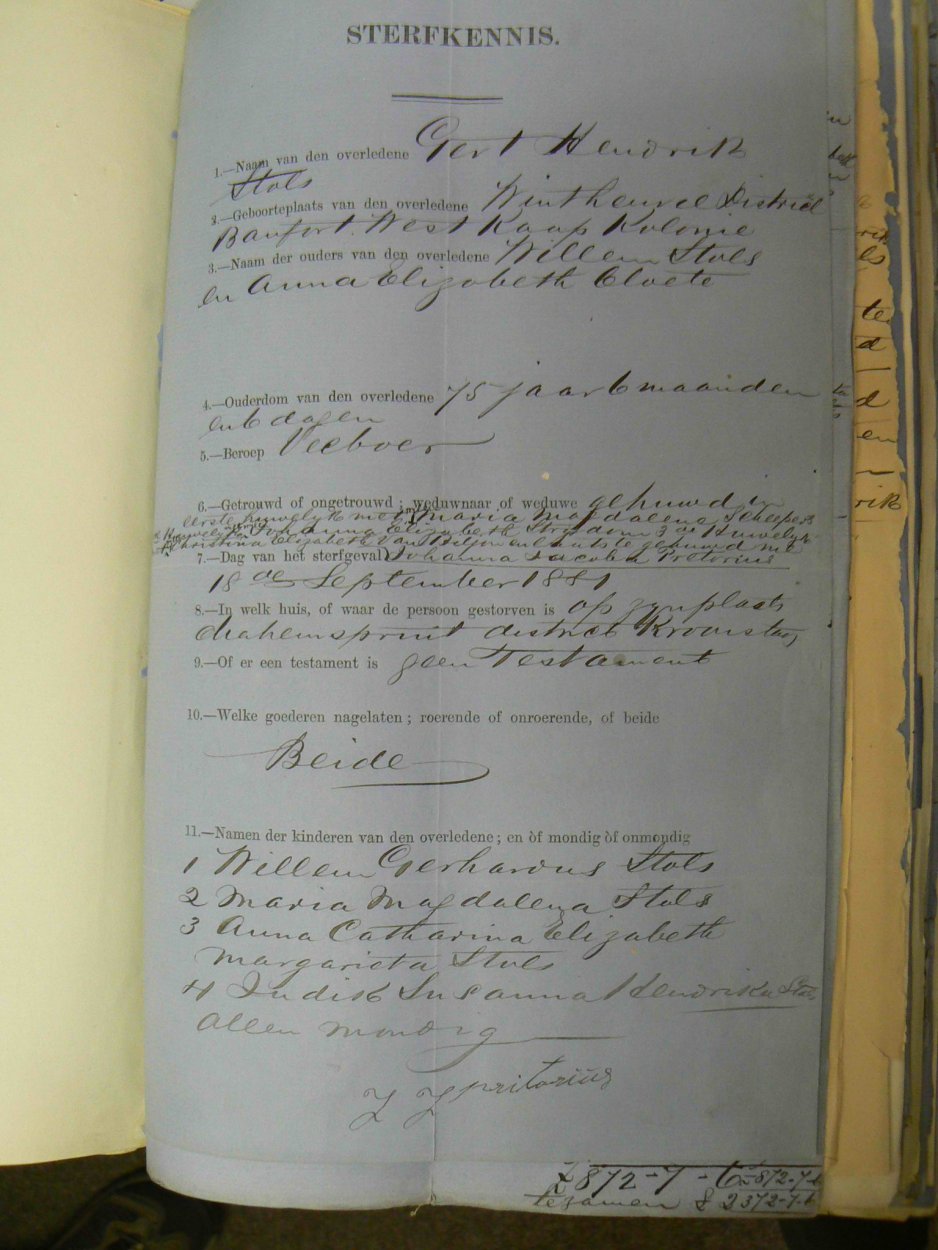 STERFKENNIS.
1.—Naam van den overledene Gert Hendrik
Stols
2.—Geboorteplaats van den overledene District
Baufort West Kaap Kolonie
3.—Naam der ouders van den overledene Willem Stols
en Anna Elizabeth Cloete
4.—Ouderdom van den overledene 75 jaar 6 maanden
en 6 dagen
5.—Beroep Veeboer
6.—Getrouwd of ongetrouwd; weduwnaar of weduwe gehuwd in
eerste huwelyk met Maria Magdalena Scheepers
Anna Elizabeth Strydom 3de Huwelyk
Christina Elizabeth van gehuwd met
7.—Dag van het sterfgeval Johanna Jacoba Pretorius
18de September 1881
8.—In welk huis, of waar de persoon gestorven is op zyn plaats
district Kroonstad
9.—Of er een testament is geen Testament
10.—Welke goederen nagelaten; roerende of onroerende, of beide
Beide
11.—Namen der kinderen van den overledene; en òf mondig òf onmondig
1 Willem Gerhardus Stols
2 Maria Magdalena Stols
3 Anna Catharina Elizabeth
Margarieta Stols
4 Judik Susanna Hendrika Stols
allen mondig
J J Pritorius
£872-7-6 £872-7-6
tezamen £ 2372-7-6